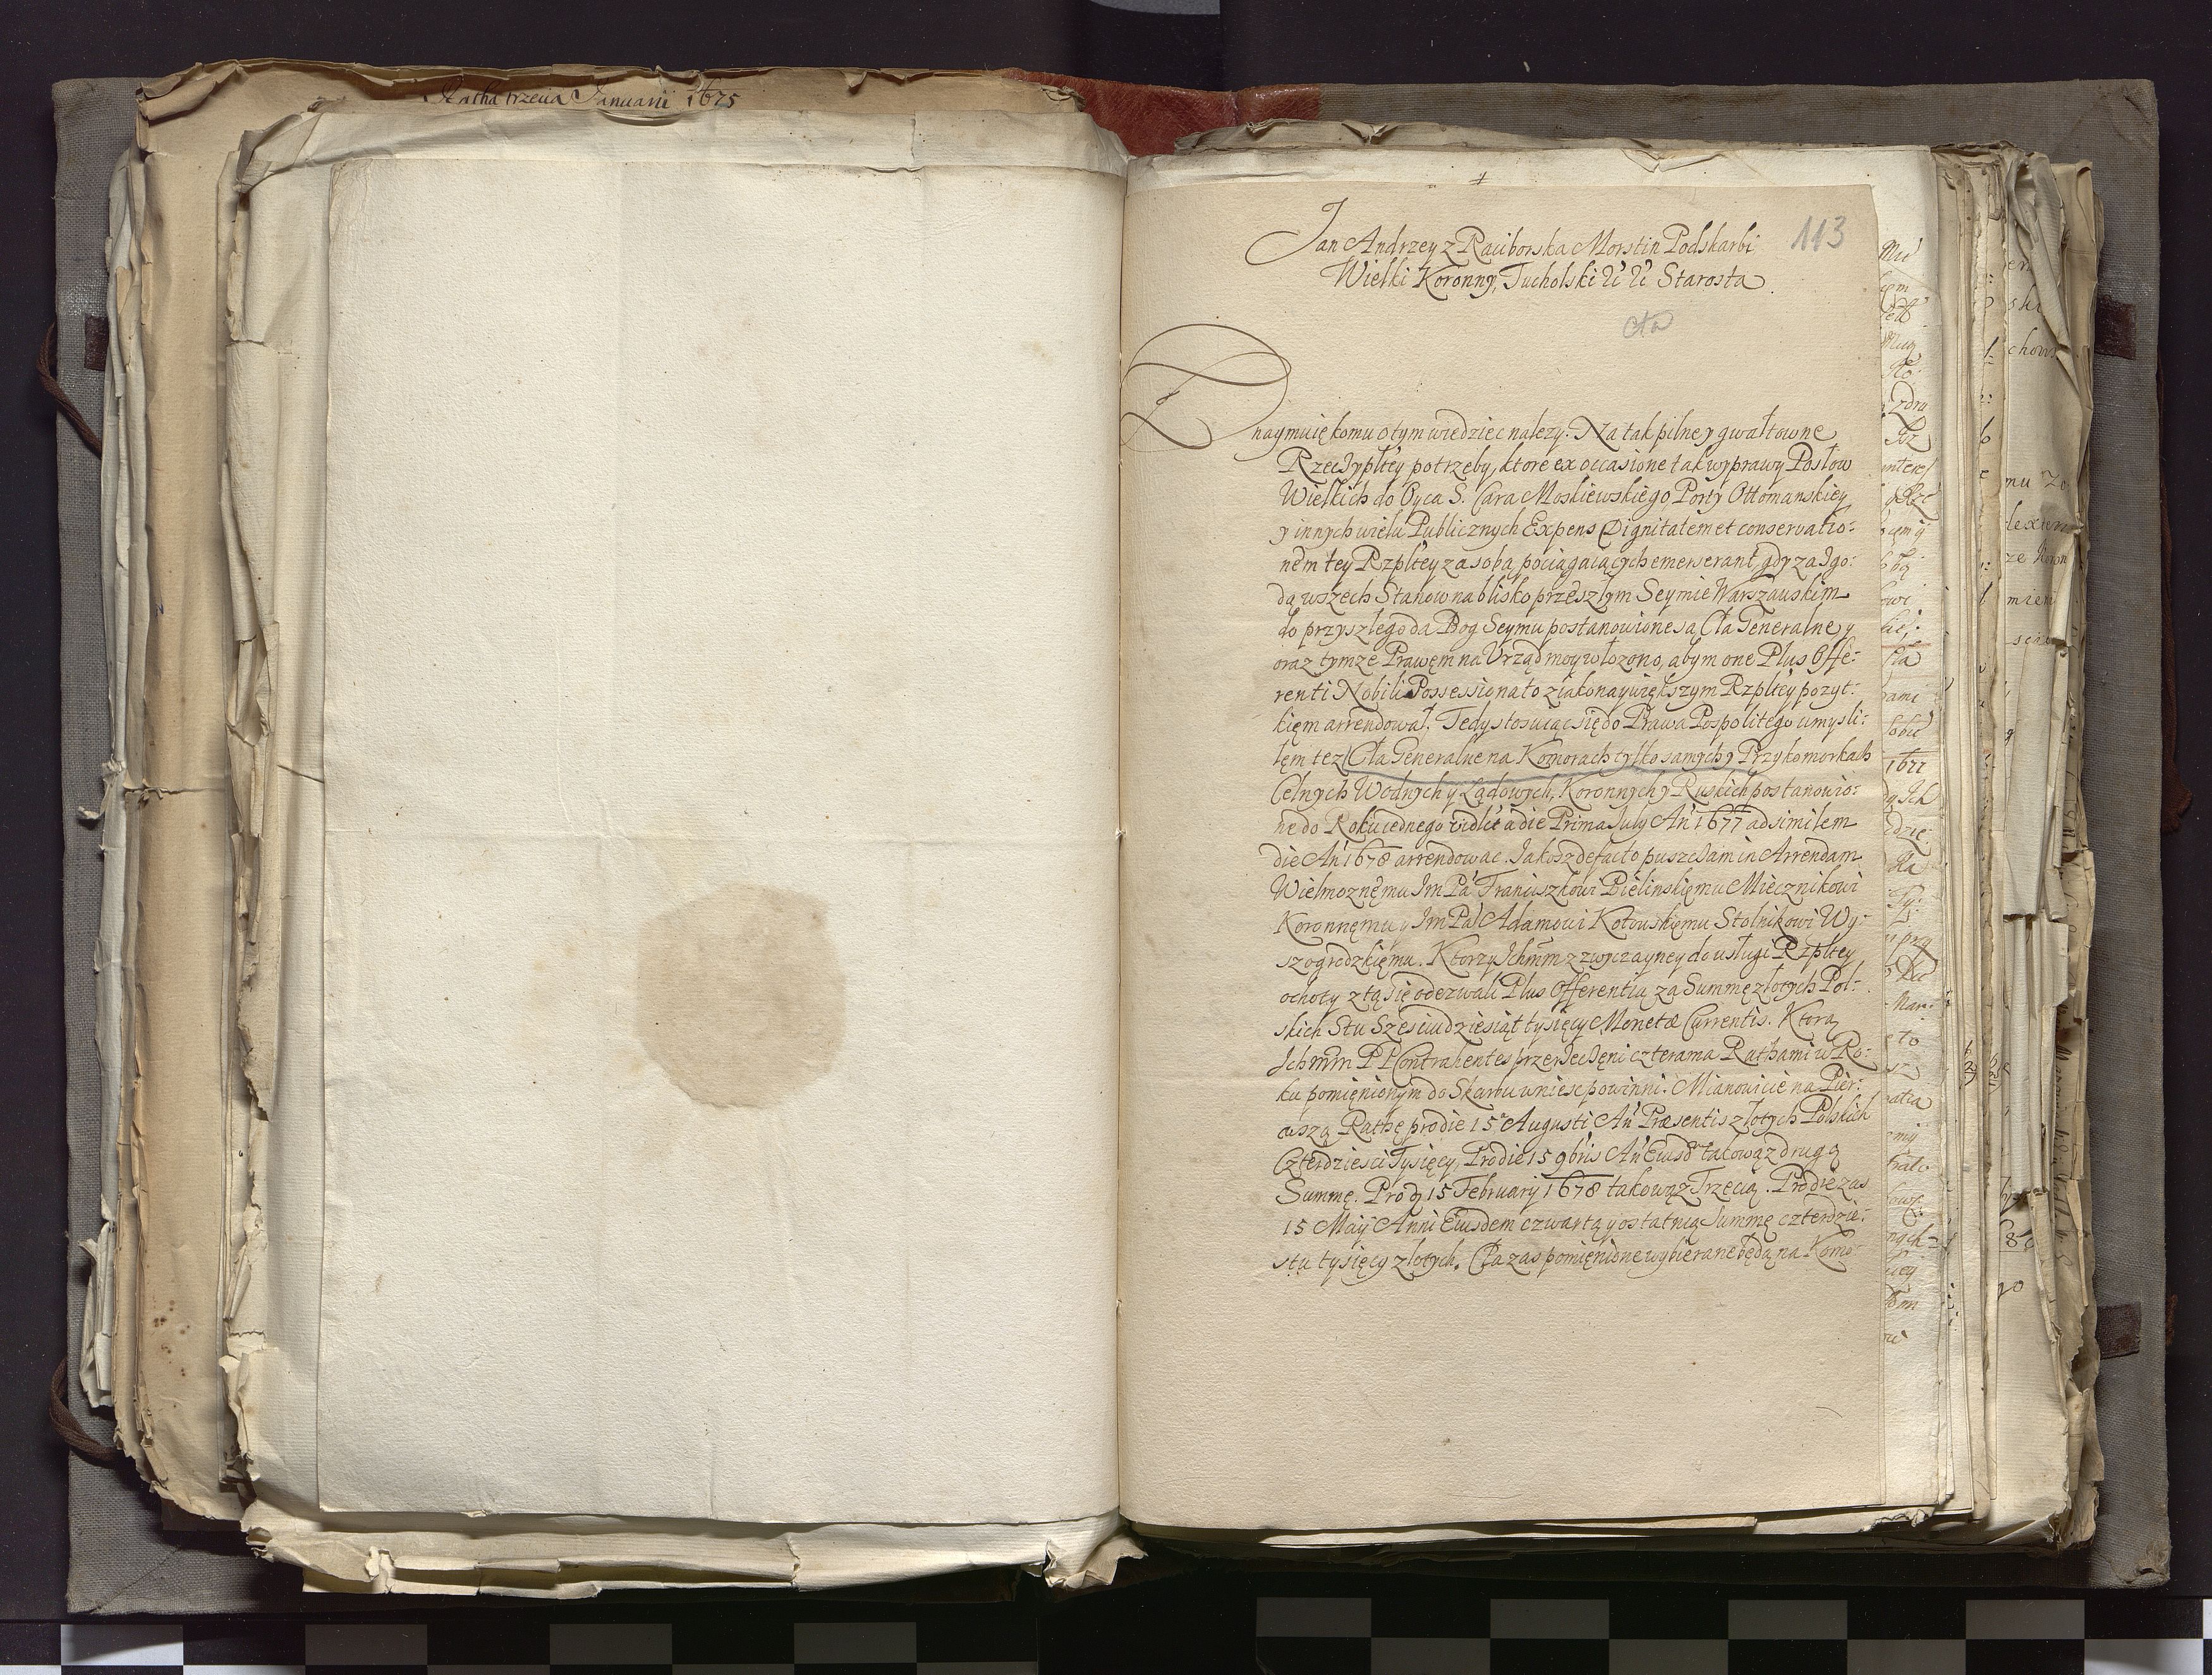 Ratha trzecia Januarii 1675
113
Jan Andrzey z Raciborska Morstin Podskarbi
Wielki Koronny, Tucholski &c &c Starosta.
Cła
Znaymuię komu o tym wiedziec nalezy. Na tak pilne y gwałtowne
Rzeczypltey potrzeby, ktore ex occasione tak wyprawy Posłow
Wielkich do Oyca S. Cara Moskiewskiego, Porty Ottomanskiey
y innych wielu Publicznych Expens Dignitatem et conservatio:
nem tey Rzpltey za sobą pociągaiących emerserant, gdy za Zgo:
dą wszech Stanow na blisko przeszłym Seymie Warszawskim
do przyszłego da Bog Seymu postanowione są Cła Generalne y
oraz tymze Prawem na Urząd moy włozono, abym one Plus Offe:
renti Nobili Possessionato z iako naywiększym Rzpltey pozyt:
kięm arrendował. Tedy stosuiąc się do Prawa Pospolitego umysli:
łęm tez Cła Generalne na Komorach tylko samych y Przykomorkach
Celnych Wodnych y Lądowych, Koronnych y Ruskich postanowio:
ne do Roku iednego vidlict a die Prima July An 1677 ad similem
die An 1678 arrendowac. Jakosz de facto puszczam in Arrendam
Wielmoznęmu Im Pa Franciszkowi Bielinskięmu Miecznikowi
Koronnęmu y Im Pa Adamowi Kotowskięmu Stolnikowi Wy:
szogrodzkięmu. Ktorzy Ichmm z zwyczayney do usługi Rzpltey
ochoty z tą się odezwali Plus Offerentią za Summę złotych Pol:
skich Stu Szesciudziesiąt tysięcy Monetæ Currentis. Ktorą
Ichmm PP Contrahentes przerzeczęni czterama Rathami w Ro:
ku pomięnionym do Skarbu wniesc powinni. Mianowicie na Pier:
wszą Rathę pro die 15 Augusti An Præsentis złotych Polskich
Czterdziesci Tysięcy, Pro die 15 9bris An Eiusd takowąz drugą
Summę. Pro d 15 February 1678 takowąz Trzecią. Pro die zas
15 May Anni Eiusdem czwartą y ostatnią Summę czterdzie:
stu tysięcy złotych. Cła zas pomięnione wybierane będą na Komo